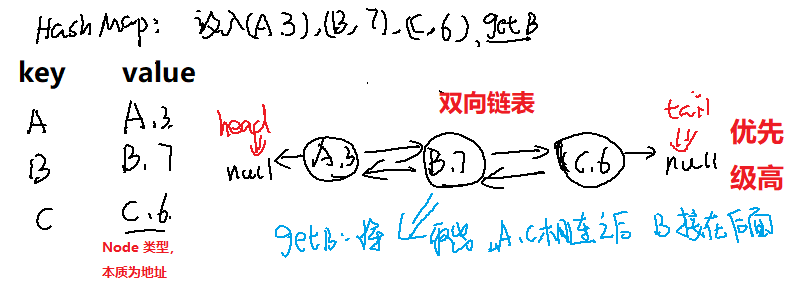 HashMap: 设入(A.3),(B,7),(C,6),getB
key value
A A.3
B B.7
C C.6
Node 类型，
本质为地址
双向链表
head
tail
null A.3 B.7 C.6 null
优先
级高
getB: 将 取出，A.C相连之后 B接在后面